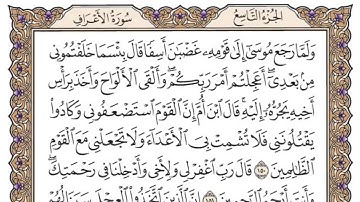 الجزء التاسع
سورة الأعراف
وَلَمَّا رَجَعَ مُوسَىٰٓ إِلَىٰ قَوْمِهِۦ غَضْبَٰنَ أَسِفٗا قَالَ بِئْسَمَا خَلَفْتُمُونِي
مِنۢ بَعْدِيٓۖ أَعَجِلْتُمْ أَمْرَ رَبِّكُمْۖ وَأَلْقَى ٱلْأَلْوَاحَ وَأَخَذَ بِرَأْسِ
أَخِيهِ يَجُرُّهُۥٓ إِلَيْهِۚ قَالَ ٱبْنَ أُمَّ إِنَّ ٱلْقَوْمَ ٱسْتَضْعَفُونِي وَكَادُواْ
يَقْتُلُونَنِي فَلَا تُشْمِتْ بِيَ ٱلْأَعْدَآءَ وَلَا تَجْعَلْنِي مَعَ ٱلْقَوْمِ
ٱلظَّٰلِمِينَ ١٥٠ قَالَ رَبِّ ٱغْفِرْ لِي وَلِأَخِي وَأَدْخِلْنَا فِي رَحْمَتِكَۖ
وَأَنتَ أَرْحَمُ ٱلرَّٰحِمِينَ ١٥١ إِنَّ ٱلَّذِينَ ٱتَّخَذُواْ ٱلْعِجْلَ سَيَنَالُهُمْ